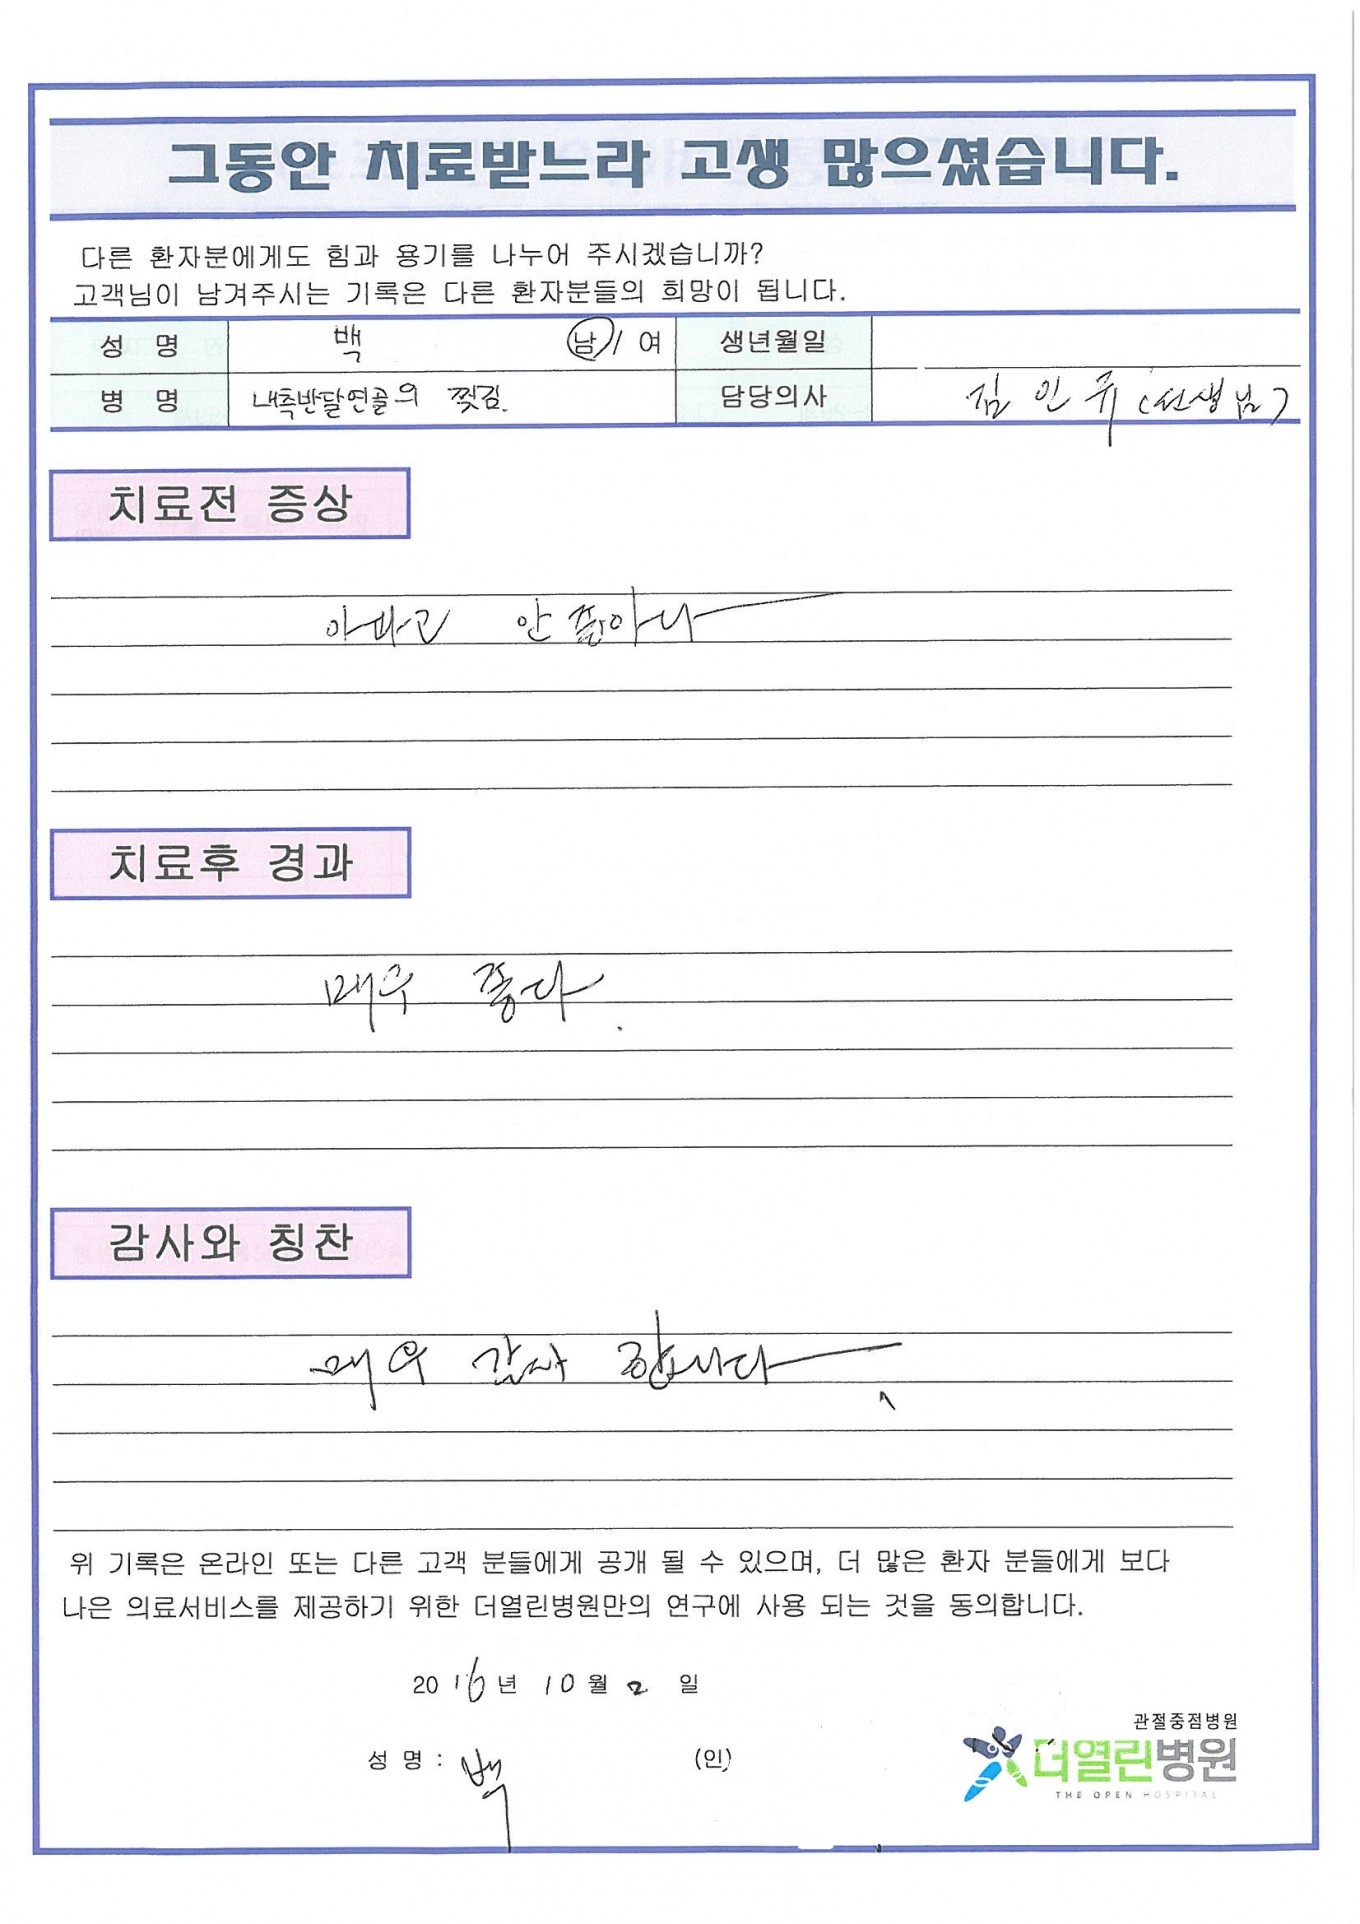 그동안 치료받느라 고생 많으셨습니다.
다른 환자분에게도 힘과 용기를 나누어 주시겠습니까?
고객님이 남겨주시는 기록은 다른 환자분들의 희망이 됩니다.
성 명 백 남 / 여 생년월일
병 명 내측반달연골의 찢김. 담당의사 김 인 (선생님)
치료전 증상
아파고 안
치료후 경과
매우 좋다.
감사와 칭찬
매우 감사 합니다
위 기록은 온라인 또는 다른 고객 분들에게 공개 될 수 있으며, 더 많은 환자 분들에게 보다
나은 의료서비스를 제공하기 위한 더열린병원만의 연구에 사용 되는 것을 동의합니다.
2016년 10월 2 일
성 명 : 백 (인)
관절중점병원
더열린병원
THE OPEN HOSPITAL